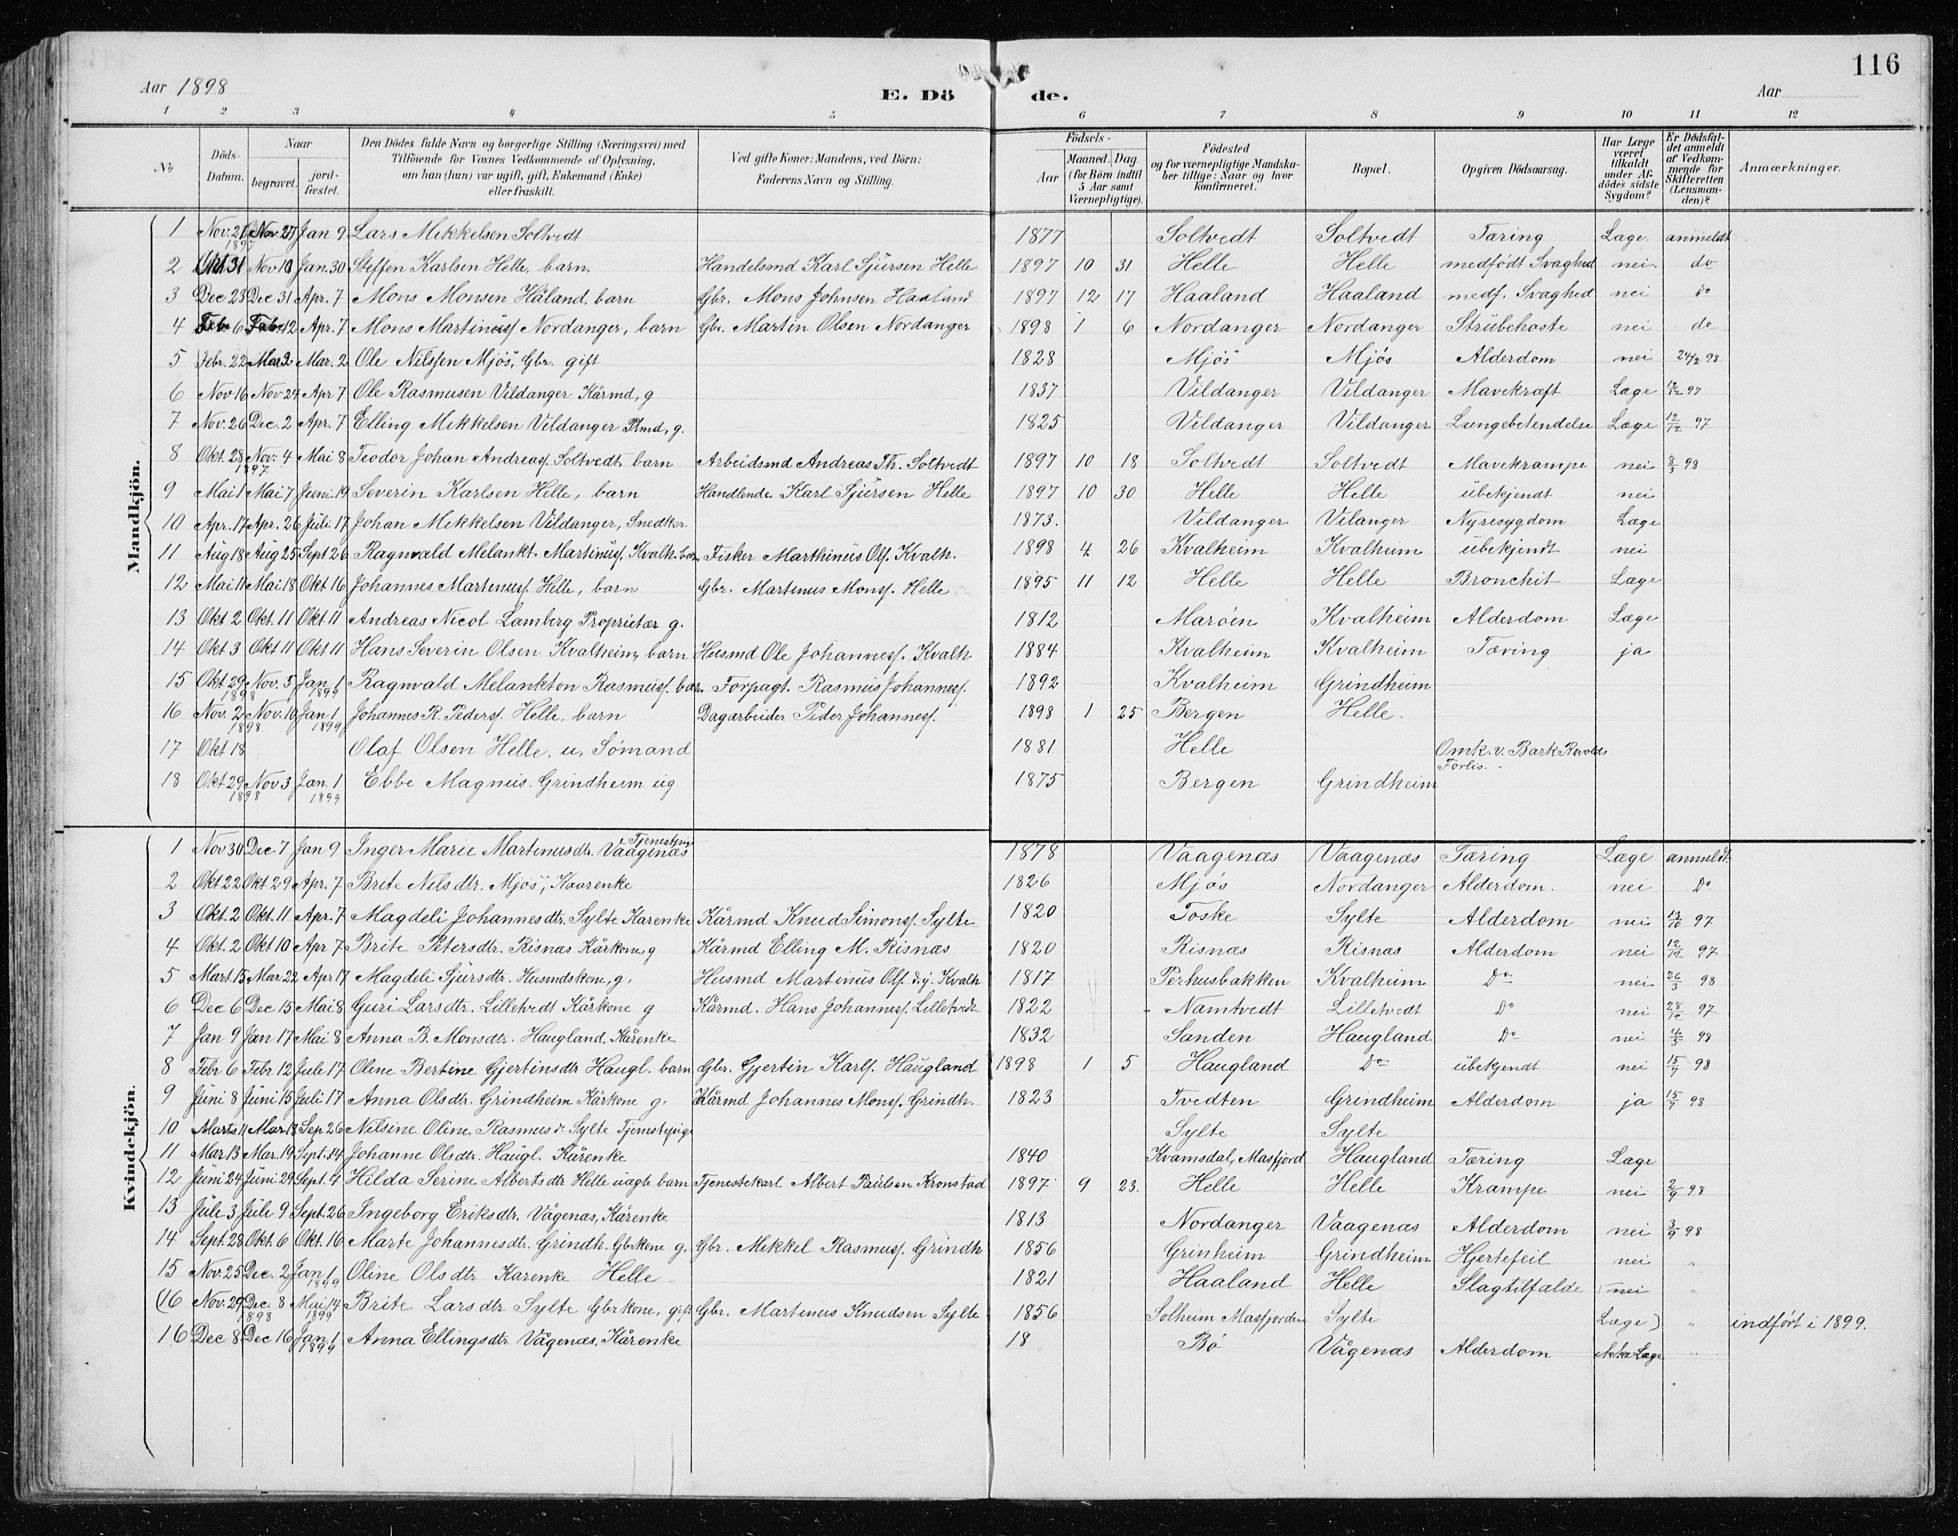 116
Aar 1898
E. Dö de.
Aar
1 2 3 4 5 6 7 8 9 10 11 12
No
Döds-Datum.
Naar
begravet.
jord-fæstet.
Den Dödes fulde Navn og borgerlige Stilling (Næringsvei) med
Tilföiende for Voxnes Vedkommende af Oplysning,
om han (hun) var ugift, gift, Enkemand (Enke)
eller fraskilt.
Ved gifte Koner: Mandens, ved Börn:
Faderens Navn og Stilling.
Födsels-
Aar
Maaned. Dag.
(for Börn indtil
5 Aar samt
Værnepligtige).
Födested
og for værnepligtige Mandska-
ber tillige: Naar og hvor
konfirmeret.
Bopæl.
Opgiven Dödsaarsag.
Har Læge
været
tilkaldt
under Af-
dödes sidste
Sygdom?
Er Dödsfal-
det anmeldt
af Vedkom-
mende for
Skifteretten
(Lensman-
den)?
Anmærkninger.
Mandkjön.
1 Nov. 21 1897 Nov 27 Jan 9 Lars Mikkelsen Soltvedt 1877 Soltvedt Soltvedt Tæring Læge anmeldt
2 Okt 31 Nov 10 Jan. 30 Steffen Karlsen Helle, barn. Handelsmd Karl Sjursen Helle 1897 10 31 Helle Helle medfödt Svaghed nei do
3 Dec 23 Dec 31 Apr. 7 Mons Monsen Håland, barn Gbr. Mons Johnsen Haaland 1897 12 17 Haaland Haaland medf. Svaghed nei do
4 Feb 6 Feb 12 Apr. 7 Mons Martinusf Nordanger, barn Gbr. Martin Olsen Nordanger 1898 1 6 Nordanger Nordanger Strubehoste nei do
5 Febr. 22 Mar 2 Mar. 2 Ole Nilssen Mjös, Gbr. gift 1828 Mjös Mjös Alderdom nei 24/2 98
6 Nov 16 Nov 24 Apr 7 Ole Rasmusen Vildanger Kårmd, g 1837 Vildanger Vildanger Mavekræft Læge 12/12 97
7 Nov. 26 Dec. 2 Apr. 7 Elling Mikkelsen Vildanger Plmd, g. 1825 Vildanger Vildanger Lungebetendelse Læge 12/12 97
8 Okt. 28 1897 Nov. 4 Mai 8 Teodor Johan Andreasf. Soltvedt, barn Arbeidsmd Andreas Th. Soltvedt 1897 10 18 Soltvedt Soltvedt Mavekrampe nei 8/3 98
9 Mai 1 Mai 7 Juni 19 Severin Karlsen Helle, barn Handlende Karl Sjürsen Helle 1897 10 30 Helle Helle ubekjendt nei
10 Apr. 17 Apr. 26 Juli 17 Johan Mikkelsen Vildanger, Snedker 1873. Vildanger Vilanger Nyresygdom Læge
11 Aug 18 Aug 25 Sept 26 Ragnvald Melankt. Martinusf. Kvalh. barn Fisker Marthinus Olf. Kvalh. 1898 4 26 Kvalheim Kvalheim ubekjendt nei
12 Mai 11 Mai 18 Okt 16 Johannes Martinusf. Helle, barn Gbr. Martinus Monsf. Helle 1895 11 12 Helle Helle Bronchit Læge
13 Okt. 2 Okt. 11 Okt 11 Andreas Nicol Lamberg Proprietær g. 1812 Maröen Kvalheim Alderdom Læge
14 Okt. 3 Okt 11 Okt 11 Hans Severin Olsen Kvalheim, barn Husmd Ole Johannesf. Kvalh 1884 Kvalheim Kvalheim Tæring ja
15 Okt. 29 1898 Nov. 5 Jan. 1 1899 Ragnvald Melankton Rasmusf. barn Forpagt. Rasmus Johannesf. 1892 Kvalheim Grindheim
16 Nov. 2 1898 Nov. 10 Jan 1 1899 Johannes R. Pedersf. Helle, barn Dagarbeider Peder Johannesf. 1898 1 25 Bergen Helle.
17 Okt 18 Olaf Olsen Helle, u. Sömand 1881 Helle Omk. v. Bark Forlis.
18 Okt 29 1898 Nov 3 Jan. 1 1899 Ebbe Magnus Grindheim ug 1875 Bergen Grindheim
Kvindekjön.
1 Nov 30 Dec 7 Jan 9 Inger Marie Martinusdtr. Vaagenæs Tjenestpig 1878 Vaagenæs Vaagenæs Tæring Læge anmeldt
2 Okt 22 Okt. 29 Apr. 7 Brite Nilsdtr. Mjös, Kaarenke 1826 Mjös Nordanger Alderdom. nei Do
3 Okt. 2 Okt. 11 Apr. 7 Magdeli Johannesdtr. Sylte Karenke Kårmd Knud Simonsf. Sylte 1820 Toske Sylte Alderdom nei 97
4 Okt. 2 Okt 10 Apr 7 Brite Petersdtr. Risnæs Kårkone, g Kårmd Elling M. Risnæs 1820 Risnæs Risnæs Alderdom nei 12/12 97
5 Mart 15 Mar. 22 Apr 17 Magdeli Sjürsdtr. Husmdskone, g. Husmd Martinus Olf. d. y. Kvalh 1817 Perhusbakken Kvalheim Do nei 26/3 98
6 Dec 6 Dec 15 Mai 8 Guri Larsdtr. Lilletvedt Kårkone g Kårmd. Hans Johannesf. Lilletvedt 1822 Namtvedt Lilletvedt Do nei 28/12 97
7 Jan 9 Jan 17 Mai 8 Anna B. Monsdtr. Haugland, Kårenke 1832 Sanden Haugland Do nei 98
8 Febr 6 Febr 12 Jule 17 Oline Bertine Gjertinsdtr Haugl. barn Gbr. Gjertin Karlf. Haugland 1898 1 5 Haugland Do ubekjendt nei 15/7 98
9 Juni 8 Juni 15 Juli 17 Anna Olsdtr. Grindheim Kårkone g. Kårmd Johannes Monsf. Grindh. 1823 Tvedten Grindheim Alderdom ja 15/7 98
10 Marts 11 Mar 18 Sep 26 Nilsine Oline Rasmusd. Sylte Tjenstepige Sylte Sylte
11 Mar 13 Mar. 19 Sept. 14 Johanne Olsdtr. Haugl. Kårenke 1840 Kvamsdal, Masfjord Haugland Tæring Læge
12 Juni 24 Juni 29 Sept. 4 Hilda Serine Albertsdtr Helle uægte barn Tjenestekarl Albert Paulsen Kronstad 1897 9 23. Helle Helle Krampe nei 2/9 98
13 Jule 3 Jule 9 Sept. 26 Ingeborg Eriksdtr. Vågenæs, Kårenke 1813 Nordanger Vaagenæs Alderdom nei 3/9 98
14 Sept. 28 Okt. 6 Okt. 16 Marte Johannesdtr. Grindh. Gbrkone g. Gbr. Mikkel Rasmusf. Grindh 1856 Grinheim Grindheim Hjertefeil nei "
15 Nov. 25 Dec. 2 Jan 1 1899 Oline Olsdtr Karenke Helle 1821 Haaland Helle Slagtilfalde nei "
(16 Nov. 29 1898 Dec. 8 Mai 14 1899 Brite Larsdtr Sylte Gbrkone, gift Gbr. Martinus Knudsen Sylte 1856 Solheim Masfjorden Sylte Læge) " indfört i 1899.
16 Dec 8 Dec 16 Jan 1 1899 Anna Ellingsdtr Vågenæs, Kårenke 18 Bö Vågenæs Alderdom ikke Læge "